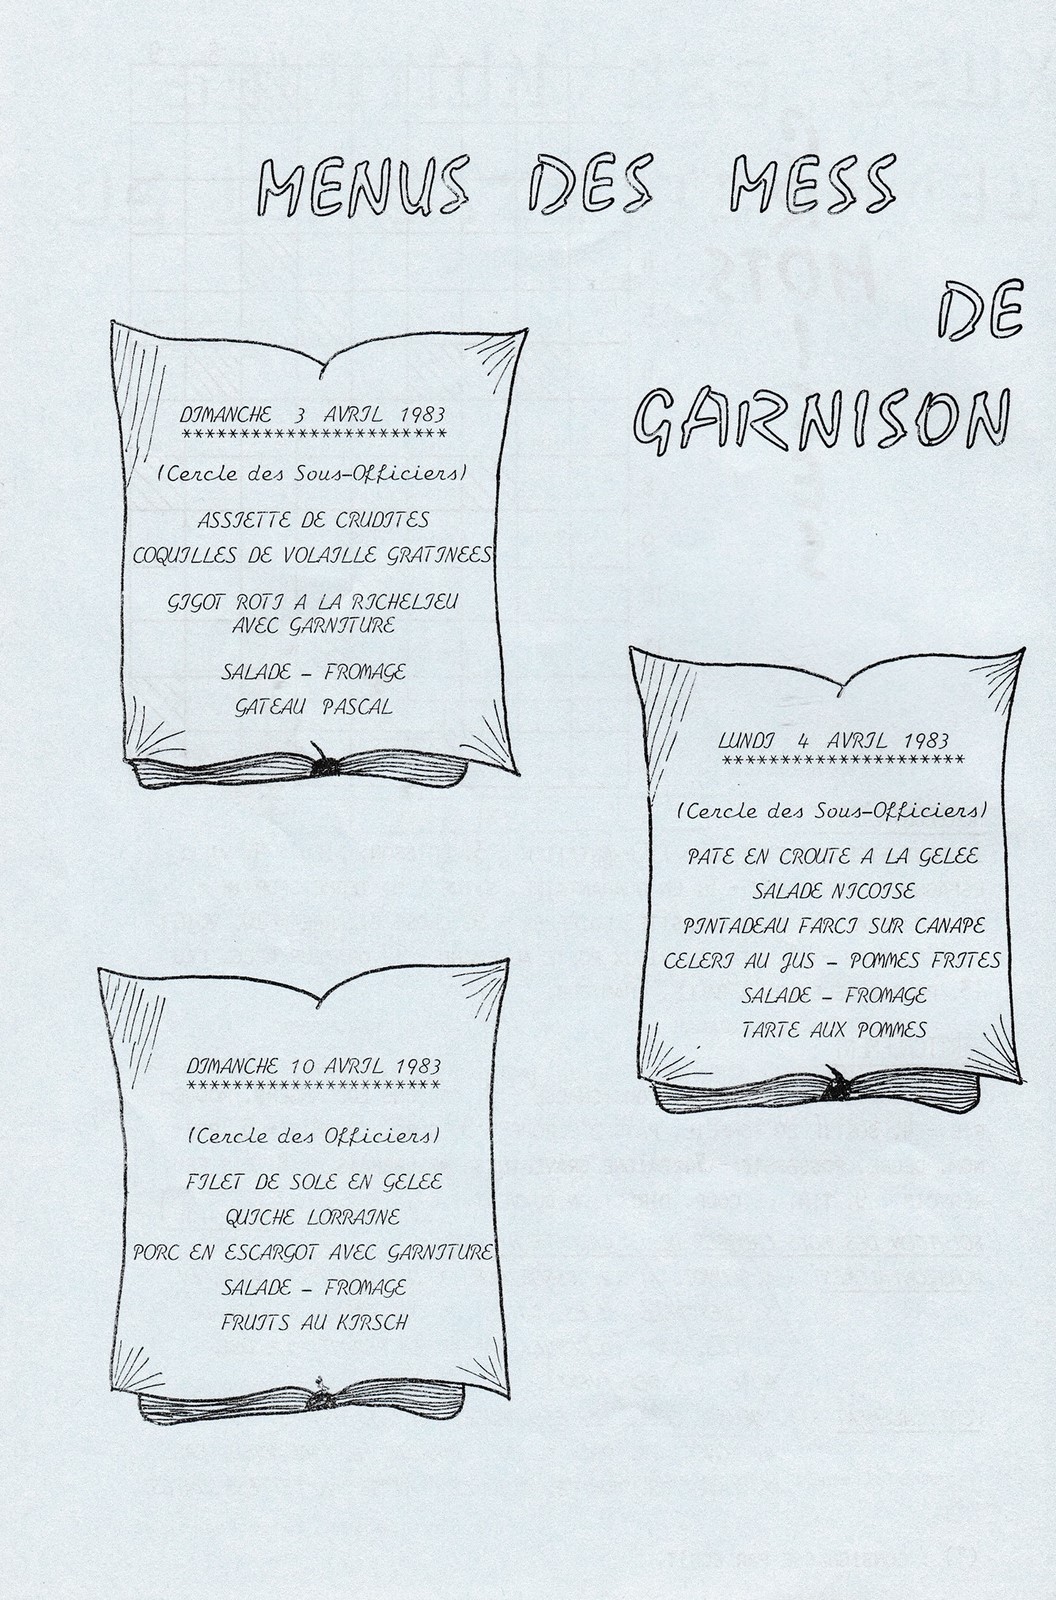 MENUS DES MESS
DE
GARNISON
DIMANCHE 3 AVRIL 1983
***********************
(Cercle des Sous-Officiers)
ASSIETTE DE CRUDITES
COQUILLES DE VOLAILLE GRATINEES
GIGOT ROTI A LA RICHELIEU
AVEC GARNITURE
SALADE - FROMAGE
GATEAU PASCAL
LUNDI 4 AVRIL 1983
*********************
(Cercle des Sous-Officiers)
PATE EN CROUTE A LA GELEE
SALADE NICOISE
PINTADEAU FARCI SUR CANAPE
CELERI AU JUS - POMMES FRITES
SALADE - FROMAGE
TARTE AUX POMMES
DIMANCHE 10 AVRIL 1983
**********************
(Cercle des Officiers)
FILET DE SOLE EN GELEE
QUICHE LORRAINE
PORC EN ESCARGOT AVEC GARNITURE
SALADE - FROMAGE
FRUITS AU KIRSCH